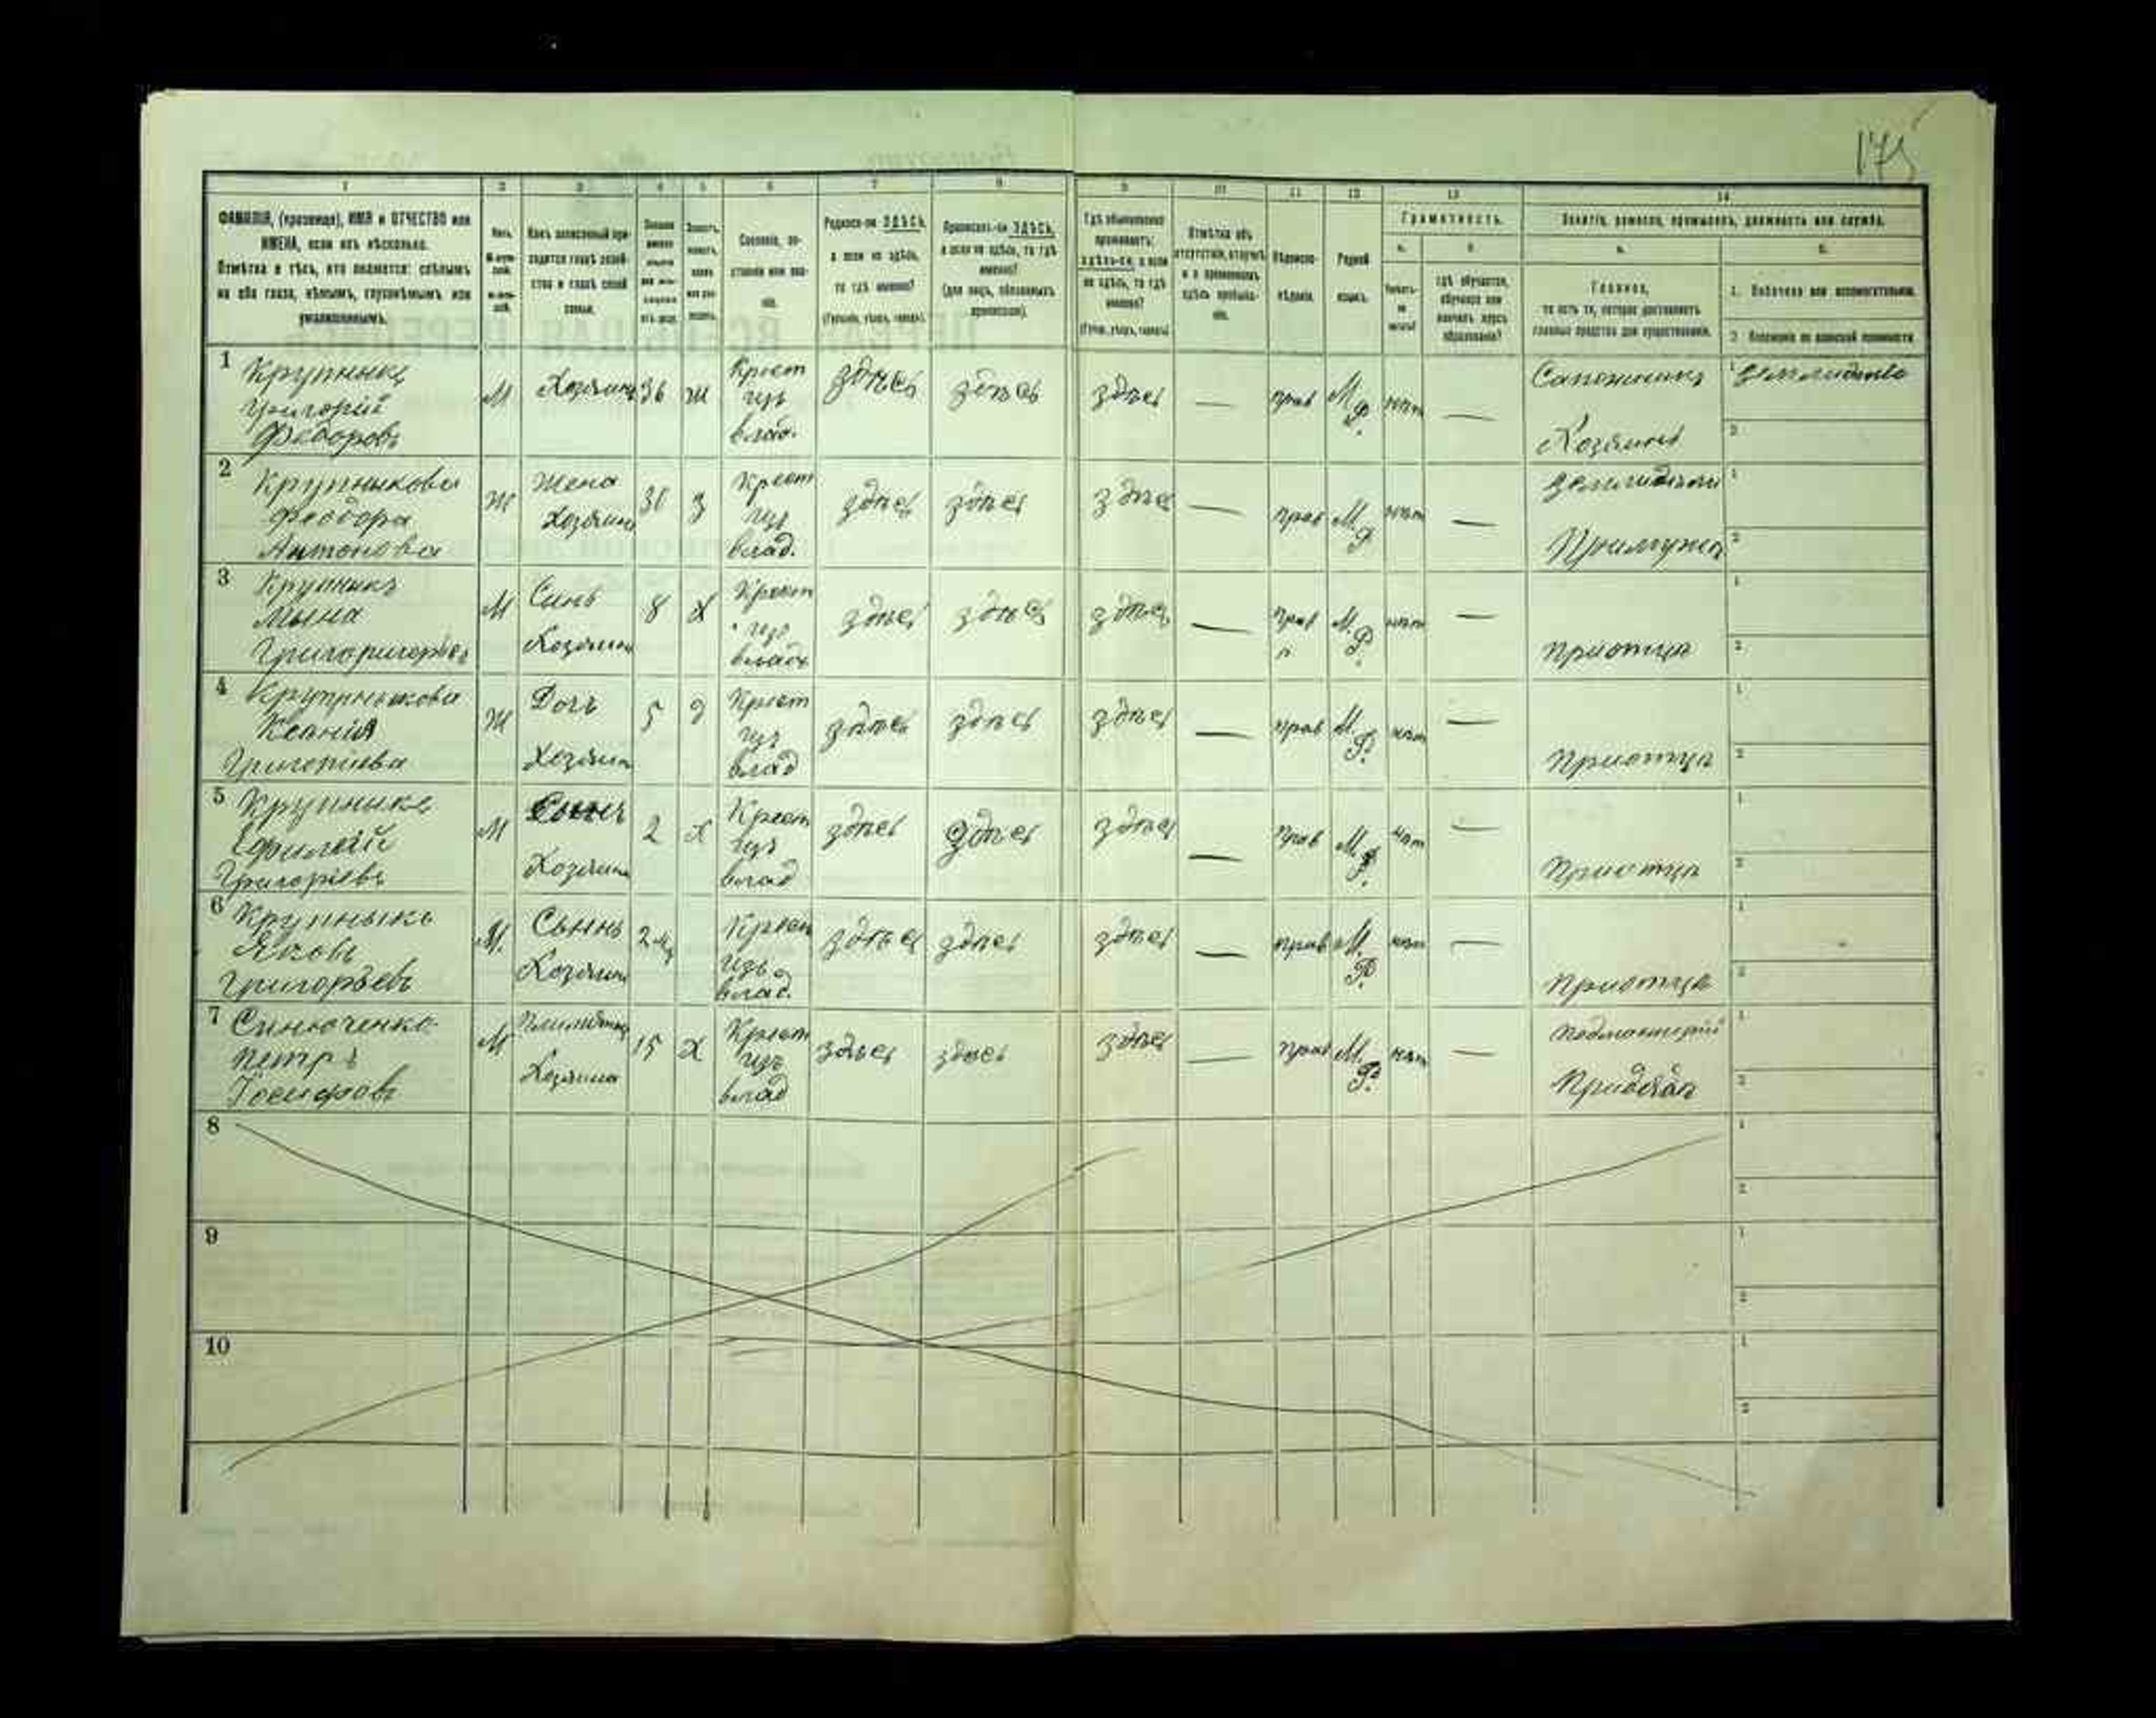 175
1 2 3 4 5 6 7 8 9 10 11 12 13 14
ФАМИЛІЯ, (прозвище), ИМЯ и ОТЧЕСТВО или
ИМЕНА, если ихъ нѣсколько.
Отмѣтка о тѣхъ, кто окажется: слѣпымъ
на оба глаза, нѣмымъ, глухонѣмымъ или
умалишеннымъ.
Полъ.
Какъ записанный при-
ходится главѣ хозяй-
ства и главѣ своей
семьи.
Сословіе, со-
стояніе или зва-
ніе.
Родился-ли ЗДѢСЬ,
а если не здѣсь,
то гдѣ именно?
(Губернія, уѣздъ, городъ).
Приписанъ-ли ЗДѢСЬ,
а если не здѣсь, то гдѣ
именно?
(для лицъ, обязанныхъ
припискою).
Гдѣ обыкновенно
проживаетъ:
здѣсь-ли, а если
не здѣсь, то гдѣ
именно?
(Губерн., уѣздъ, городъ).
Отмѣтка объ
отсутствіи, отлучкѣ
и о временномъ
здѣсь пребыва-
ніи.
Вѣроиспо-
вѣданіе.
Родной
языкъ.
Грамотность.
а. б.
Умѣетъ-
ли
читать?
гдѣ обучается,
обучался или
кончилъ курсъ
образованія?
Занятіе, ремесло, промыселъ, должность или служба.
а. б.
Главное,
то есть то, которое доставляетъ
главныя средства для существованія.
1. Побочное или вспомогательное.
2. Положеніе по воинской повинности
1 Крупныкъ
Григорій
Федоровъ
М Хозяинъ 36 ж Крест
изъ
влад. здѣсь здѣсь здѣсь — прав М.
Р. нѣт — Сапожникъ
Хозяинъ
1 Земледѣліе
2
2 Крупныкова
Феодора
Антонова
Ж Жена
Хозяина 30 з Крест
изъ
влад. здѣсь здѣсь здѣсь — прав М.
Р нѣт —
При мужѣ
1
2
3 Крупныкъ
Мына
Григоригорьев
М Синъ
Хозяина 8 Х Крест
изъ
влад. здѣсь здѣсь здѣсь — прав М.
Р. нѣт — при отцѣ
1
2
4 Крупрныкова
Ксенія
Григоріева
Ж Дочь
Хозяина 5 д Крест
изъ
влад здѣсь здѣсь здѣсь — прав М.
Р. нѣт — При отцѣ
1
2
5 Крупникъ
Григоріевъ
М Сынъ
Хозяина 2 х Крест
изъ
влад здѣсь здѣсь здѣсь — прав М.
Р. нѣт — При отцѣ
1
2
6 Крупныкъ
Яковъ
Григорьевъ
М. Сыннъ
Хозяина 2 мц Крест
изъ
влад. здѣсь здѣсь здѣсь — прав М.
Р. нѣт — При отцѣ
1
2
7 Синюченко
Петръ
Іосифовъ
М
Хозяина 15 Х Крест
изъ
влад здѣсь здѣсь здѣсь — прав М.
Р. нѣт — Подмастерій
1
2
8
1
2
9
1
2
10
1
2